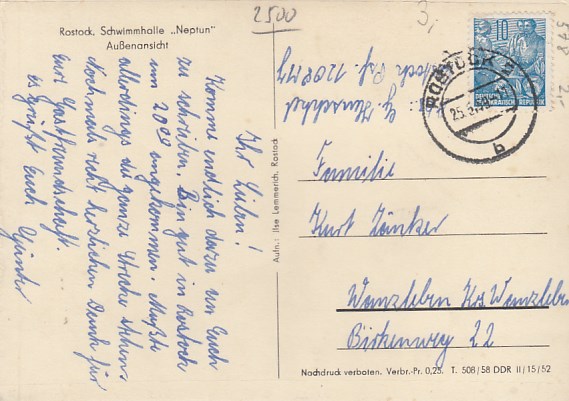 Rostock, Schwimmhalle „Neptun"
Außenansicht
2500
Ihr Lieben!
Komme endlich dazu um Euch
zu schreiben. Bin gut in Rostock
um 20°° angekommen. Mußte
allerdings die ganze Strecke stehen
Nochmals recht herzlichen Dank für
eure Gastfreundschaft.
es grüßt Euch Günter
Aufn.: Ilse Lemmerich, Rostock
10
ROSTOCK
b
Familie
Kurt Zänker
Wanzleben Krs. Wanzleben
Birkenweg 22
Nachdruck verboten. Verbr.-Pr. 0,25. T. 508/58 DDR II/15/52